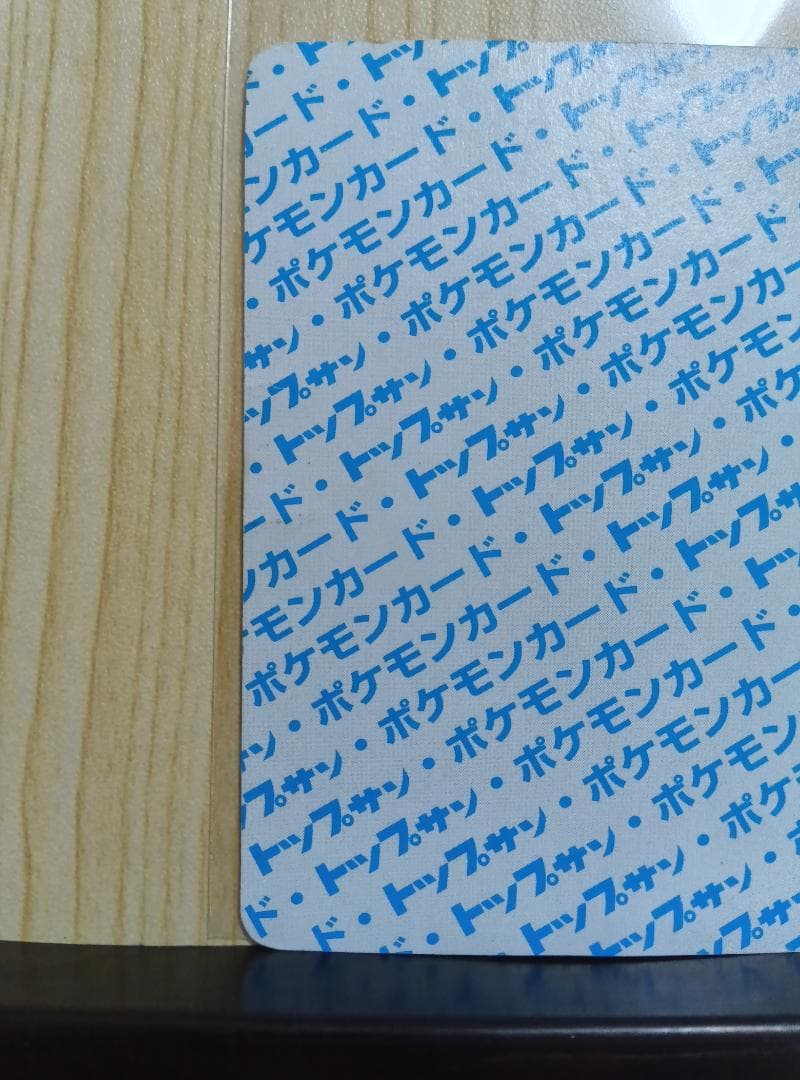 ド・トッ
ード・トッ
ンカード・トップ
ケモンカード・トップサ
・ポケモンカード・トップサン
サン・ポケモンカード・トップサン
ップサン・ポケモンカード・トップサン
・トップサン・ポケモンカード・ト
ード・トップサン・ポケモンカード・
ンカード・トップサン・ポケモンカー
ケモンカード・トップサン・ポケモン
ポケモンカード・トップサン・ポケ
サン・ポケモンカード・トップサン・
プサン・ポケモンカード・トップサ
トップサン・ポケモンカード・ト
ド・トップサン・ポケモンカード・
ド・トップサン・ポケモンカー
ド・トップサン・ポケモン
トップサン・ポケ
トップサン・
トップサ